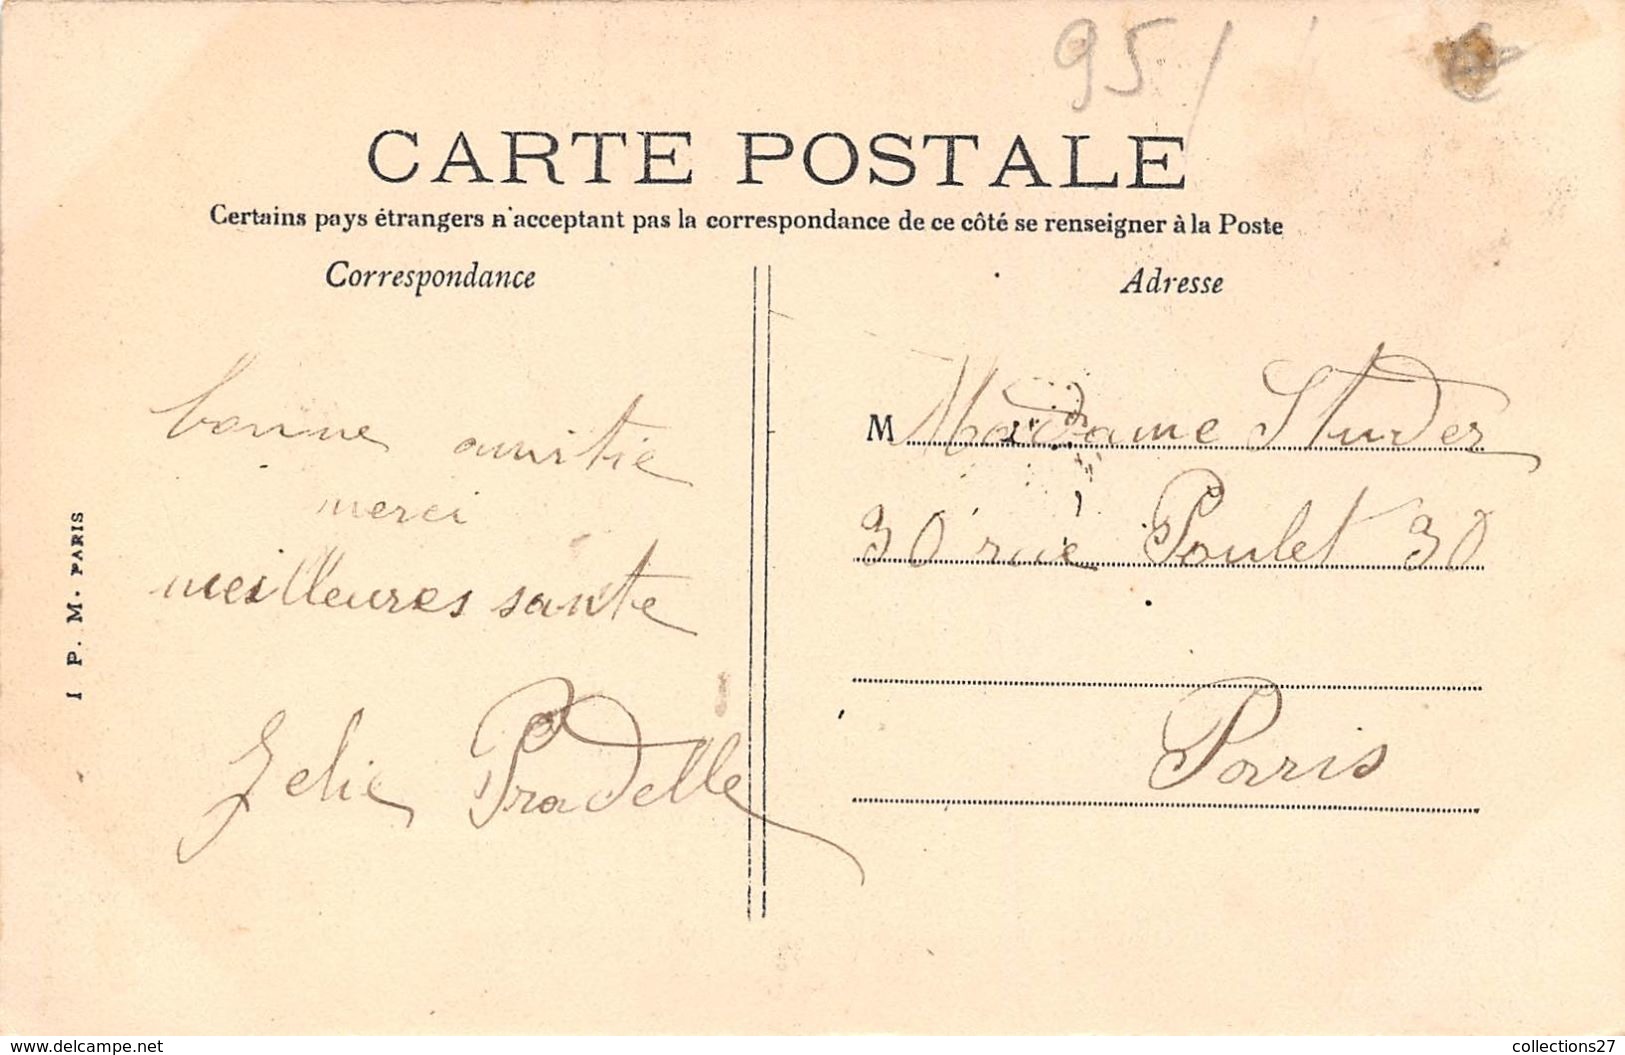 95
CARTE POSTALE
Certains pays étrangers n'acceptant pas la correspondance de ce côté se renseigner à la Poste
Correspondance
bonne amitie
merci
meilleures sante
Zelie Pradelle
I P. M. PARIS
Adresse
M Madame Studer
30 rue Poulet 30
Paris
www.delcampe.net
collections27